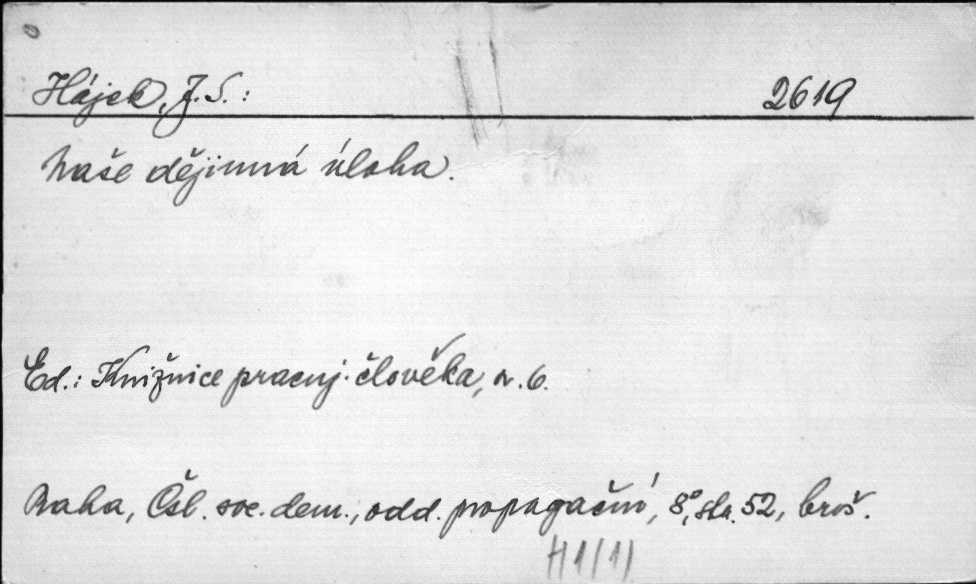 Hájek, J.S.: 2619
Naše dějinná úloha.
Ed.: Knižnice pracuj. člověka, sv. 6.
Praha, Čsl. soc. dem., odd. propagační, 8°, str. 52, brož.
H1/1)